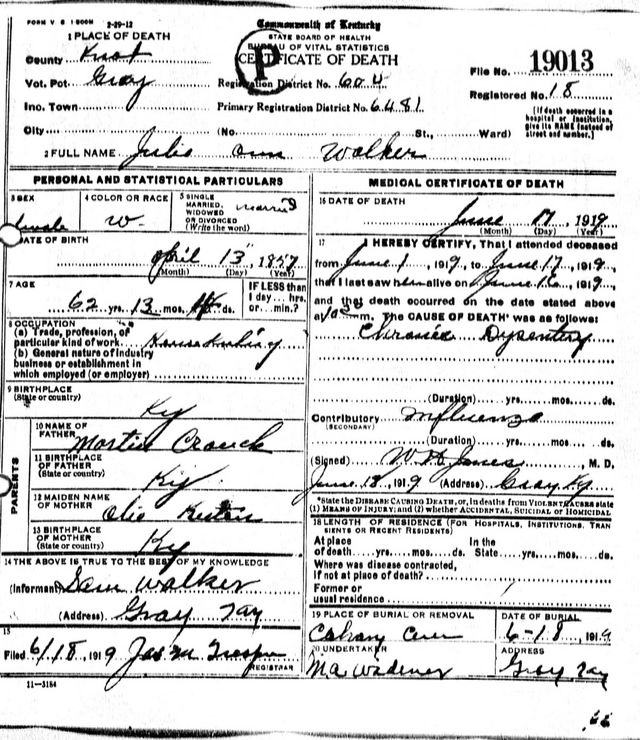 FORM V S 1 2-29-12
Commonwealth of Kentucky
STATE BOARD OF HEALTH
BUREAU OF VITAL STATISTICS
CERTIFICATE OF DEATH
P
1 PLACE OF DEATH
County Knox
Vot. Pct Gray
Inc. Town
City (No. St., Ward)
Registration District No. 604
Primary Registration District No. 6481
File No. 19013
Registered No. 18
(If death occurred in a hospital or institution, give its NAME instead of street and number.)
2 FULL NAME Julia Ann Walker
PERSONAL AND STATISTICAL PARTICULARS
3 SEX
female
4 COLOR OR RACE
W.
5 SINGLE MARRIED, WIDOWED OR DIVORCED (Write the word) married
DATE OF BIRTH
April 13, 1857
(Month) (Day) (Year)
7 AGE
62 yrs. 13 mos. ds.
IF LESS than 1 day... hrs. or... min.?
8 OCCUPATION
(a) Trade, profession, or particular kind of work
(b) General nature of industry business or establishment in which employed (or employer)
9 BIRTHPLACE
(State or country)
Ky
PARENTS
10 NAME OF FATHER
Martin
11 BIRTHPLACE OF FATHER
(State or country)
Ky
12 MAIDEN NAME OF MOTHER
13 BIRTHPLACE OF MOTHER
(State or country)
Ky
14 THE ABOVE IS TRUE TO THE BEST OF MY KNOWLEDGE
(Informant) Sam Walker
(Address) Gray
15
Filed 6/18, 1919
REGISTRAR
11-3184
MEDICAL CERTIFICATE OF DEATH
16 DATE OF DEATH
June 17, 1919
(Month) (Day) (Year)
17 I HEREBY CERTIFY, That I attended deceased
from June 1, 1919, to June 17, 1919,
that I last saw her alive on June 16, 1919,
and that death occurred on the date stated above
at m. The CAUSE OF DEATH* was as follows:
Chronic Dysentery
(Duration) yrs. mos. ds.
Contributory Influenza
(SECONDARY)
(Duration) yrs. mos. ds.
(Signed) Jones M. D.
June 18, 1919 (Address) Gray Ky
*State the DISEASE CAUSING DEATH, or, in deaths from VIOLENT CAUSES state
(1) MEANS OF INJURY; and (2) whether ACCIDENTAL, SUICIDAL or HOMICIDAL
18 LENGTH OF RESIDENCE (FOR HOSPITALS, INSTITUTIONS, TRANSIENTS OR RECENT RESIDENTS)
At place of death yrs. mos. ds.
In the State yrs. mos. ds.
Where was disease contracted,
If not at place of death?
Former or usual residence
19 PLACE OF BURIAL OR REMOVAL
DATE OF BURIAL
6-18, 1919
20 UNDERTAKER
ADDRESS
Gray